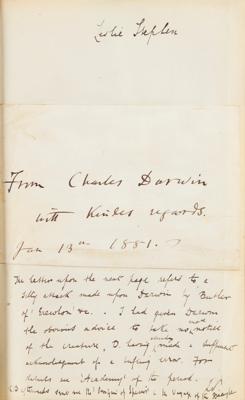 Leslie Stephen
From Charles Darwin
with kindest regards.
Jan 13th 1881.
The letter upon the next page refers to a
silly attack made upon Darwin by Butler
of 'Erewhon' &c. . I had given Darwin
the obvious advice to take no more notice
of the creature, D. having made a sufficient
acknowledgment of a trifling error. For
details see 'Academy' of the period.
L.S.